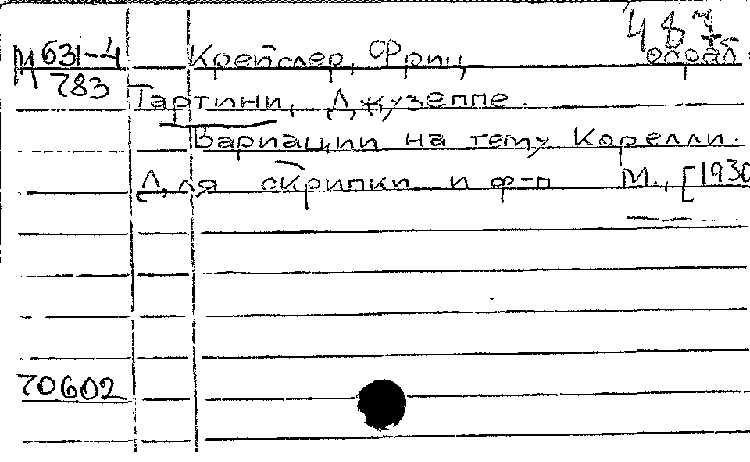 487
М 631-4 Крейслер, Фриц обраб.
783
Тартини, Джузеппе.
Вариации на тему Корелли.
Для скрипки и ф-п М., [1930
70602